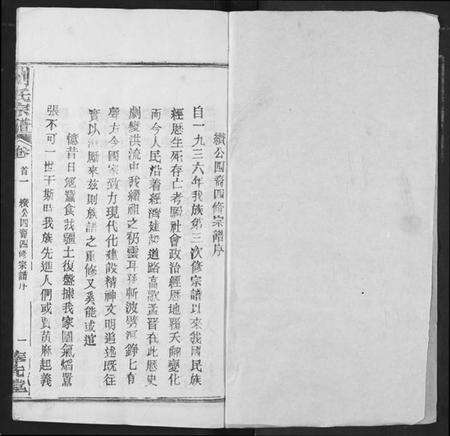 續公四裔四修宗譜序
自一九三六年我族第三次修宗譜以來我國民族
經歷生死存亡考驗社會政治經歷地覆天翻變化
而今人民沿着經濟建設道路高歌孟晉在此歷史
劇變洪流中我續祖之礽雲耳孫斬波劈浪錚七有
聲方今國家致力現代化建設精神文明追述既往
實以 勵來玆則族譜之重修又奚能或逭
憶昔日寇蠶食我疆土復盤據我家園氣焰囂
張不可一世于斯時我族先進人們或負黃麻起義
氏宗譜
卷首一
續公四裔四修宗譜序
一